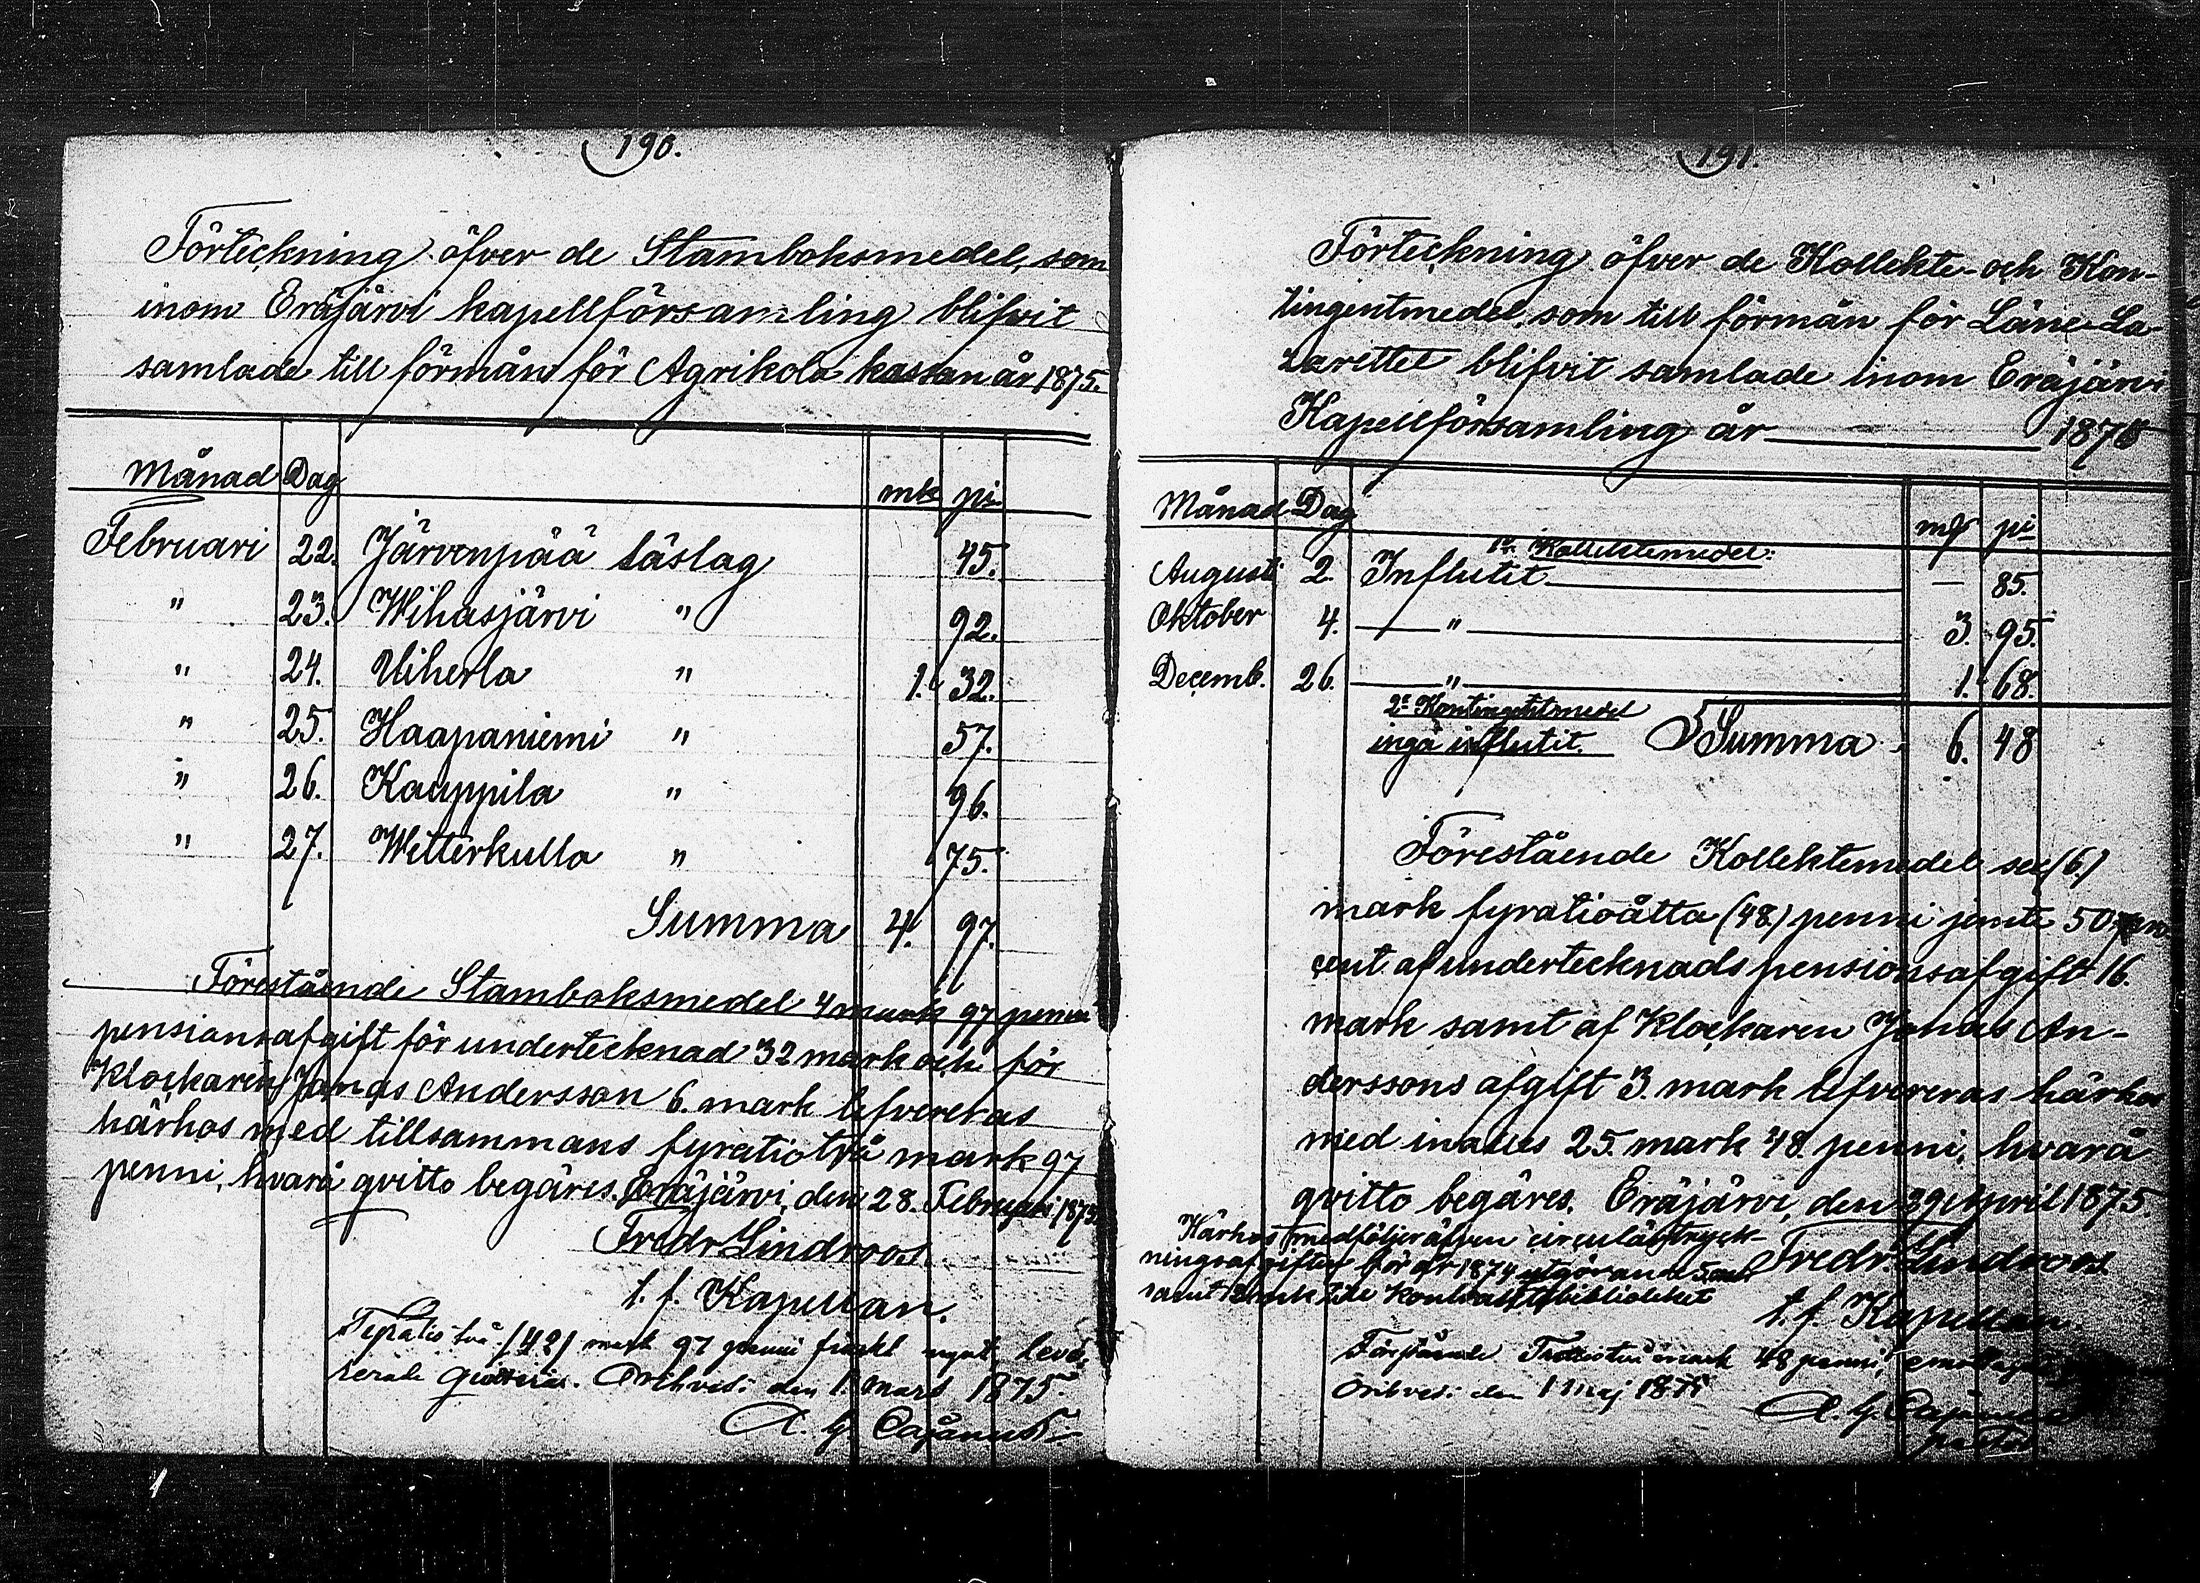 190.
Förteckning öfver de Stamboksmedel, som
inom Eräjärvi kapellförsamling blifvit
samlade till förmån för Agrikola kassan år 1875.
Månad Dag mk pi
Februari 22. Järvenpää läslag 45.
" 23. Wihasjärvi " 92.
" 24. Uiherla " 1. 32.
" 25. Haapaniemi " 57.
" 26. Kauppila " 96.
" 27. Wetterkulla " 75.
Summa 4. 97.
Förestående Stamboksmedel 4 mark 97 penni
pensionsafgift för undertecknad 32 mark och för
Klockaren Jonas Andersson 6. mark lefvereras
härhos med tillsammans fyratiotvå mark 97
penni, hvarå qvitto begäres. Eräjärvi, den 28. Februari 1875.
Fredr Lindroos.
t. f. Kapellan.
Fyratio två (42) mark 97 penni
Orihvesi den 1 mars 1875.
A. G. Cajanus
191.
Förteckning öfver de Kollekte- och Kon-
tingentmedel, som till förmån för Läne-La-
zarettet blifvit samlade inom Eräjärvi
Kapellförsamling år 1875
Månad Dag mk pi
1º Kollektemedel:
Augusti 2. Influtit — 85.
Oktober 4. — " — 3. 95.
Decemb. 26. — " — 1. 68.
2º Kontingentmedel
inga influtit. Summa 6. 48
Förestående Kollektemedel sex (6.)
mark fyratioåtta (48.) penni jemte 50 pro-
cent af undertecknads pensionsafgift 16.
mark samt af Klockaren Jonas An-
derssons afgift 3. mark lefvereras härhos
med inalles 25. mark 48. penni, hvarå
qvitto begäres. Eräjärvi, den 29 April 1875.
Härhos medföljer äfven cirkulärtryck-
ningsafgiften för år 1874 utgörande 5 mk
samt mk till Kontraktsbiblioteket
Fredr. Lindroos
t. f. Kapellan.
mark 48 penni,
Orihvesi den 1 Maj 1875
A. G. Cajanus
pastor.